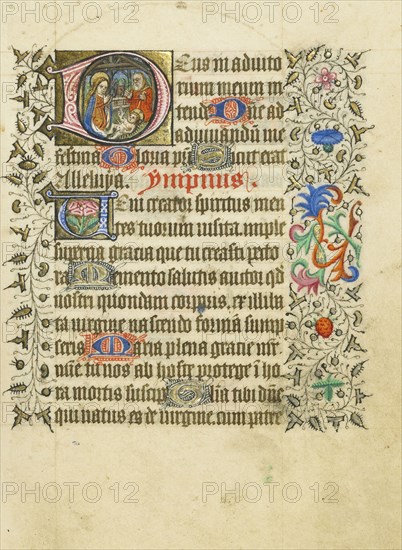 Deus in adiuto
rium meum in
tende Dne ad
adiuuandū me
festina Gloria pr̄i Sicut erat
Alleluya. ympnus.
Veni creator spiritus men
tes tuorum visita imple
superna gracia que tu creasti pecto
ra Memento salutis auctor qd
nostri quondam corporis, ex illiba
ta virgine nascendo formā sump
seris Maria plena gracie m̄r
mīe tu nos ab hoste protege ī ho
ra mortis suscipe Gl̄ia tibi dn̄e
qui natus es de virgine. cum patre
PHOTO 12